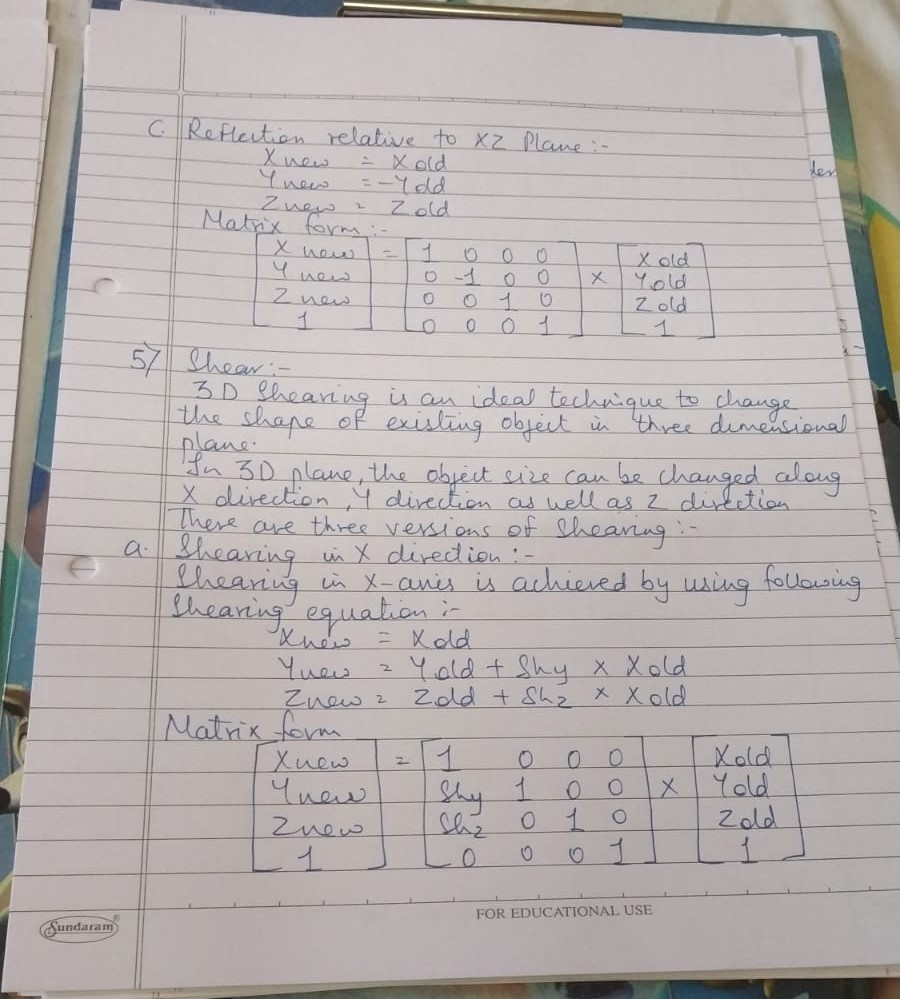 C. Reflection relative to XZ Plane :-
Xnew = Xold
Ynew = -Yold
Znew = Zold
Matrix form :-
Xnew = 1 0 0 0 Xold
Ynew 0 -1 0 0 × Yold
Znew 0 0 1 0 Zold
1 0 0 0 1 1
5) Shear :-
3D Shearing is an ideal technique to change
the shape of existing object in three dimensional
plane.
In 3D plane, the object size can be changed along
X direction, Y direction as well as Z direction
There are three versions of Shearing :-
a. Shearing in X direction :-
Shearing in X-axis is achieved by using following
Shearing equation :-
Xnew = Xold
Ynew = Yold + Shy × Xold
Znew = Zold + Shz × Xold
Matrix form
Xnew = 1 0 0 0 Xold
Ynew Shy 1 0 0 × Yold
Znew Shz 0 1 0 Zold
1 0 0 0 1 1
FOR EDUCATIONAL USE
Sundaram®